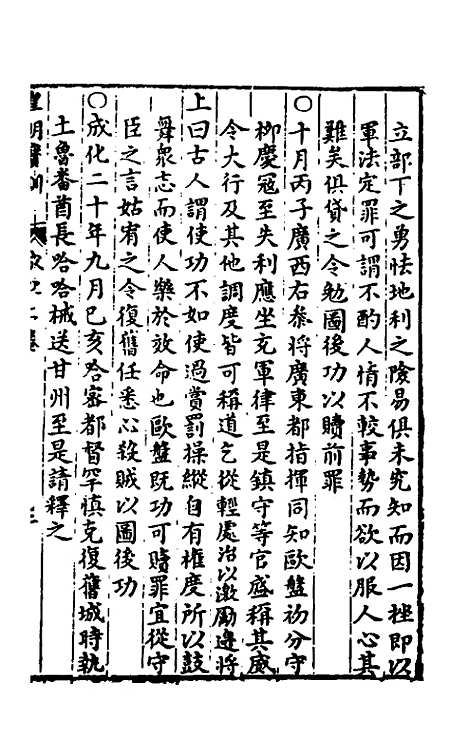 立部丁之勇怯地利之險易俱未究知而因一挫即以
軍法定罪可謂不酌人情不較事勢而欲以服人心其
難矣俱貸之令勉圖後功以贖前罪
○十月丙子廣西右叅將廣東都指揮同知歐盤初分守
柳慶寇至失利應坐充軍律至是鎮守等官盛稱其威
令大行及其他調度皆可稱道乞從輕處治以激勵邊將
上曰古人謂使功不如使過賞罰操縱自有權度所以鼓
舞衆志而使人樂於效命也歐盤既功可贖罪宜從守
臣之言姑宥之令復舊任悉心殺賊以圖後功
○成化二十年九月己亥哈密都督罕慎克復舊城時執
土魯番酋長哈哈械送甘州至是請釋之
皇明寶訓